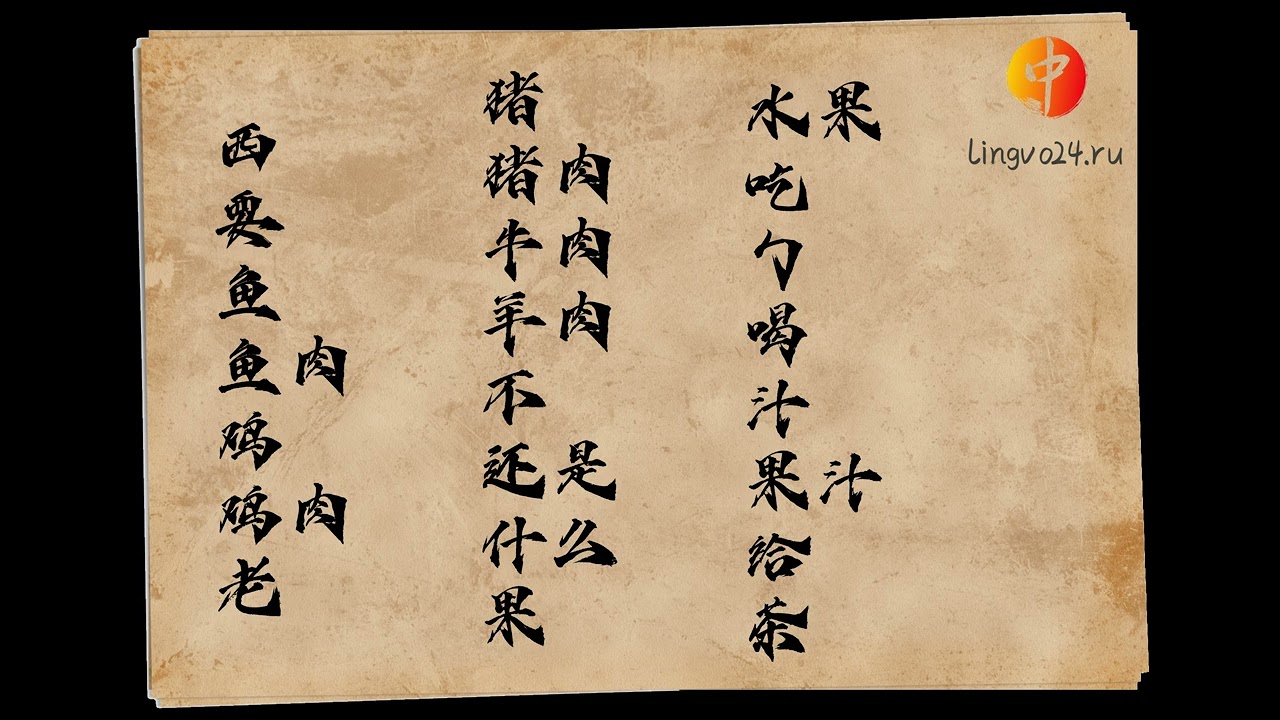 西
要
鱼
鱼肉
鸡
鸡肉
老
猪
猪肉
牛肉
羊肉
不
还是
什么
果
水果
吃
勺
喝
汁
果汁
给
茶
中
Lingvo24.ru